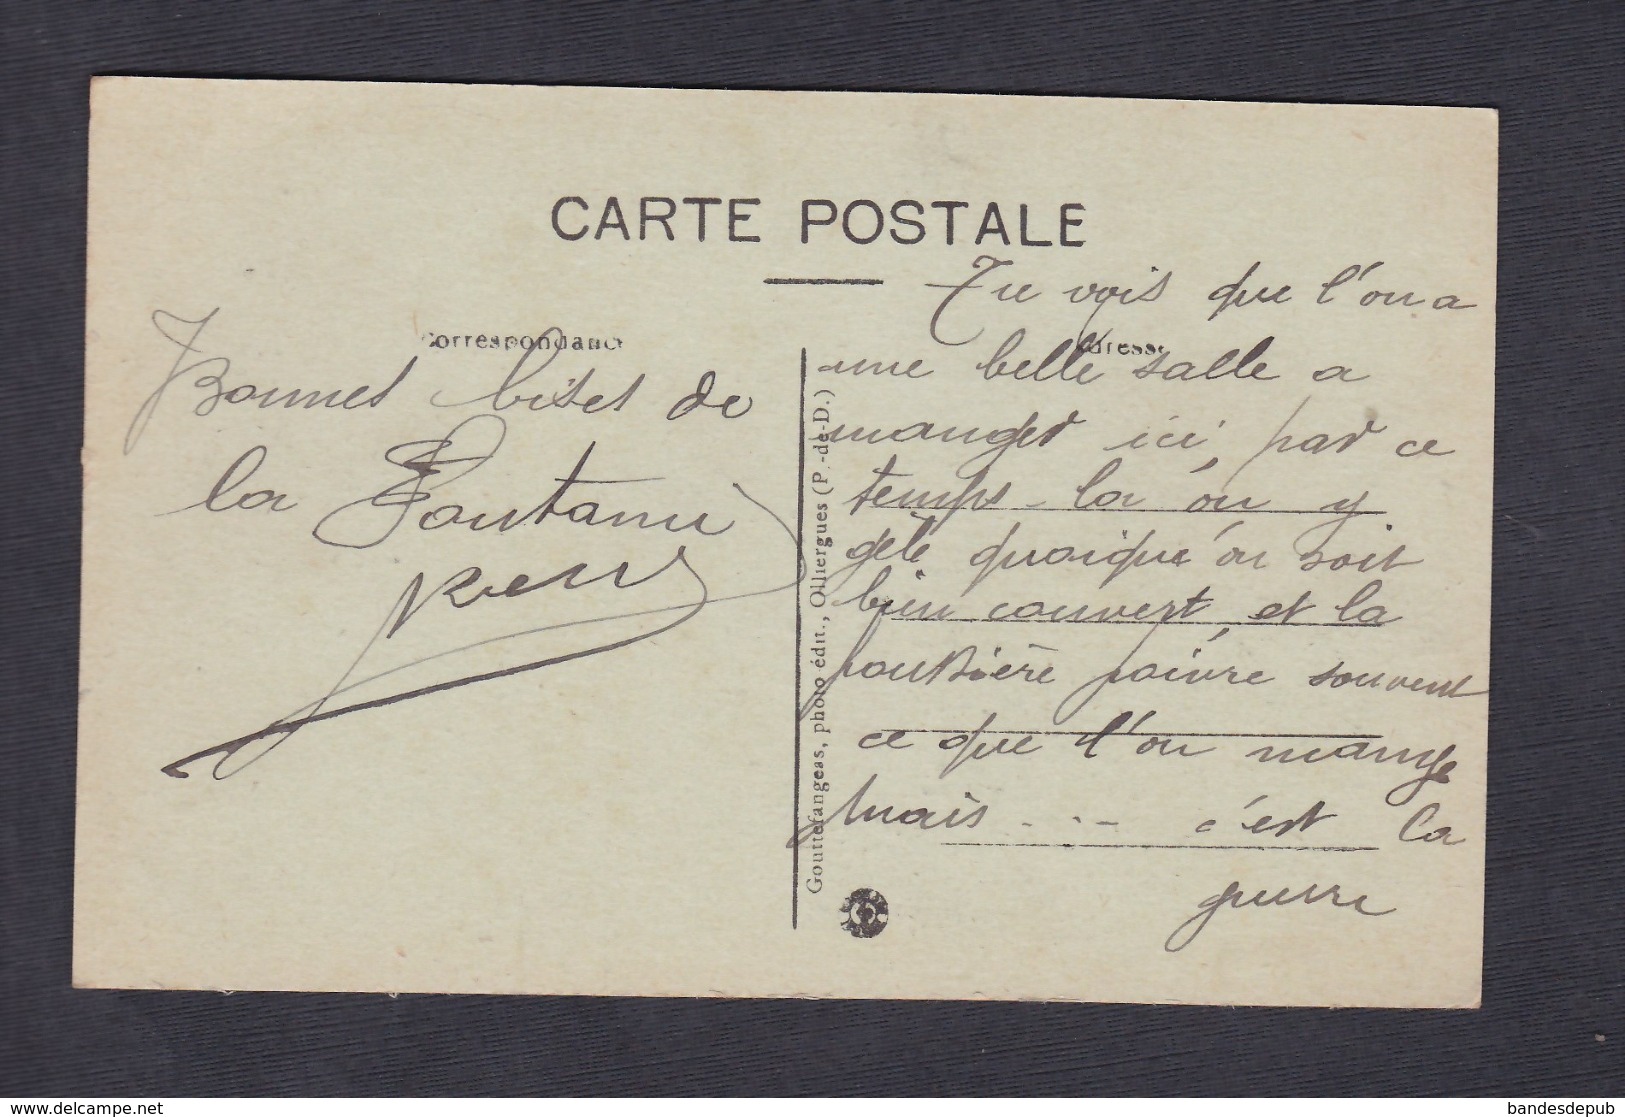 CARTE POSTALE
Correspondance
Bonnes bises de
la Fontanie
Adresse
Tu vois que l'on a
une belle salle a
manger ici, par ce
temps-là ou y
gèle quoique on soit
bien couvert, et la
poussière poivre souvent
ce que l'on mange
Mais ... c'est la
guerre
Gouttefangeas, photo édit., Olliergues (P.-de-D.)
www.delcampe.net
bandesdepub